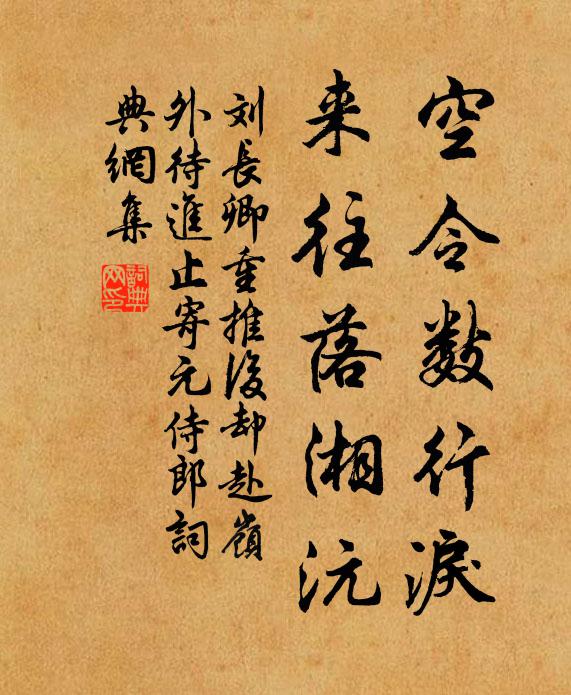 空令數行淚
来往落湘沅
刘長卿重推後却赴嶺
外待進止寄元侍郎詞
典網集
詞典
网印